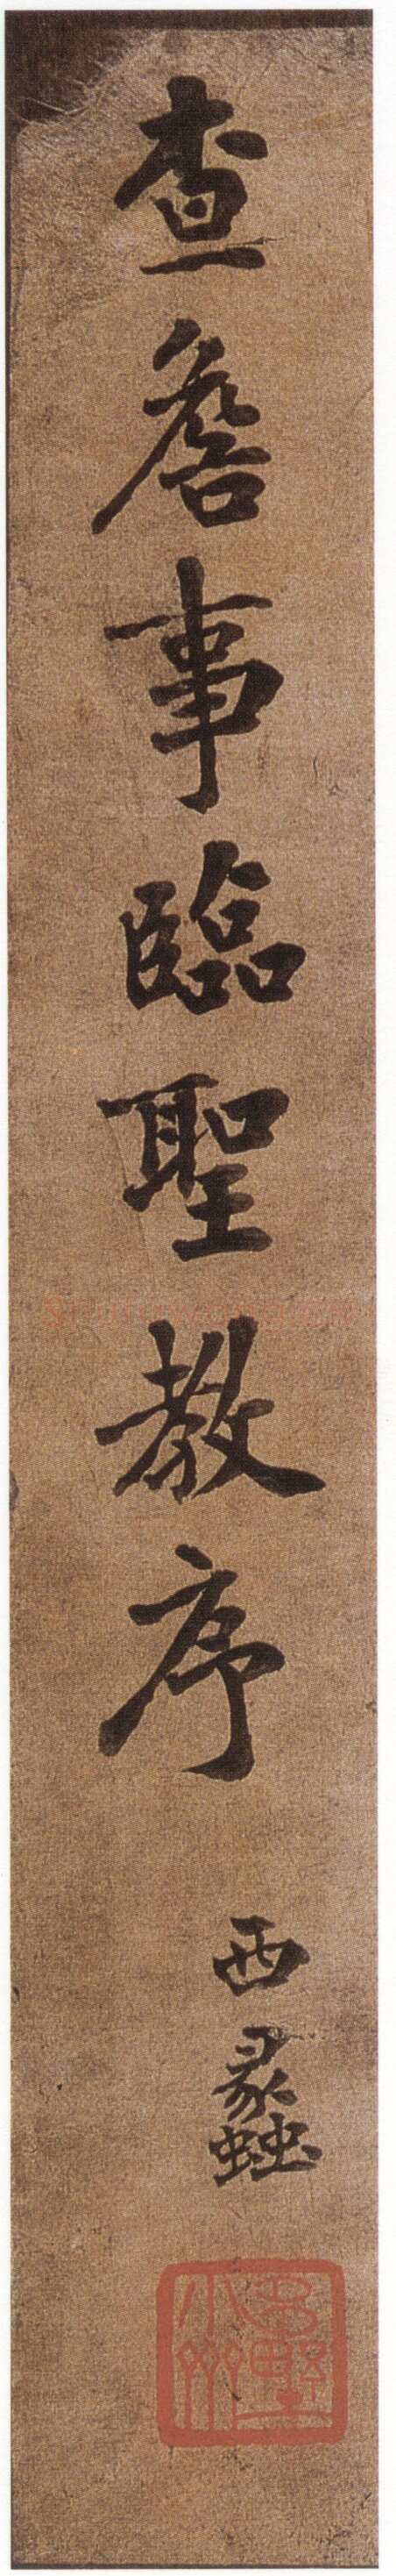 查詹事臨聖教序
西蠡